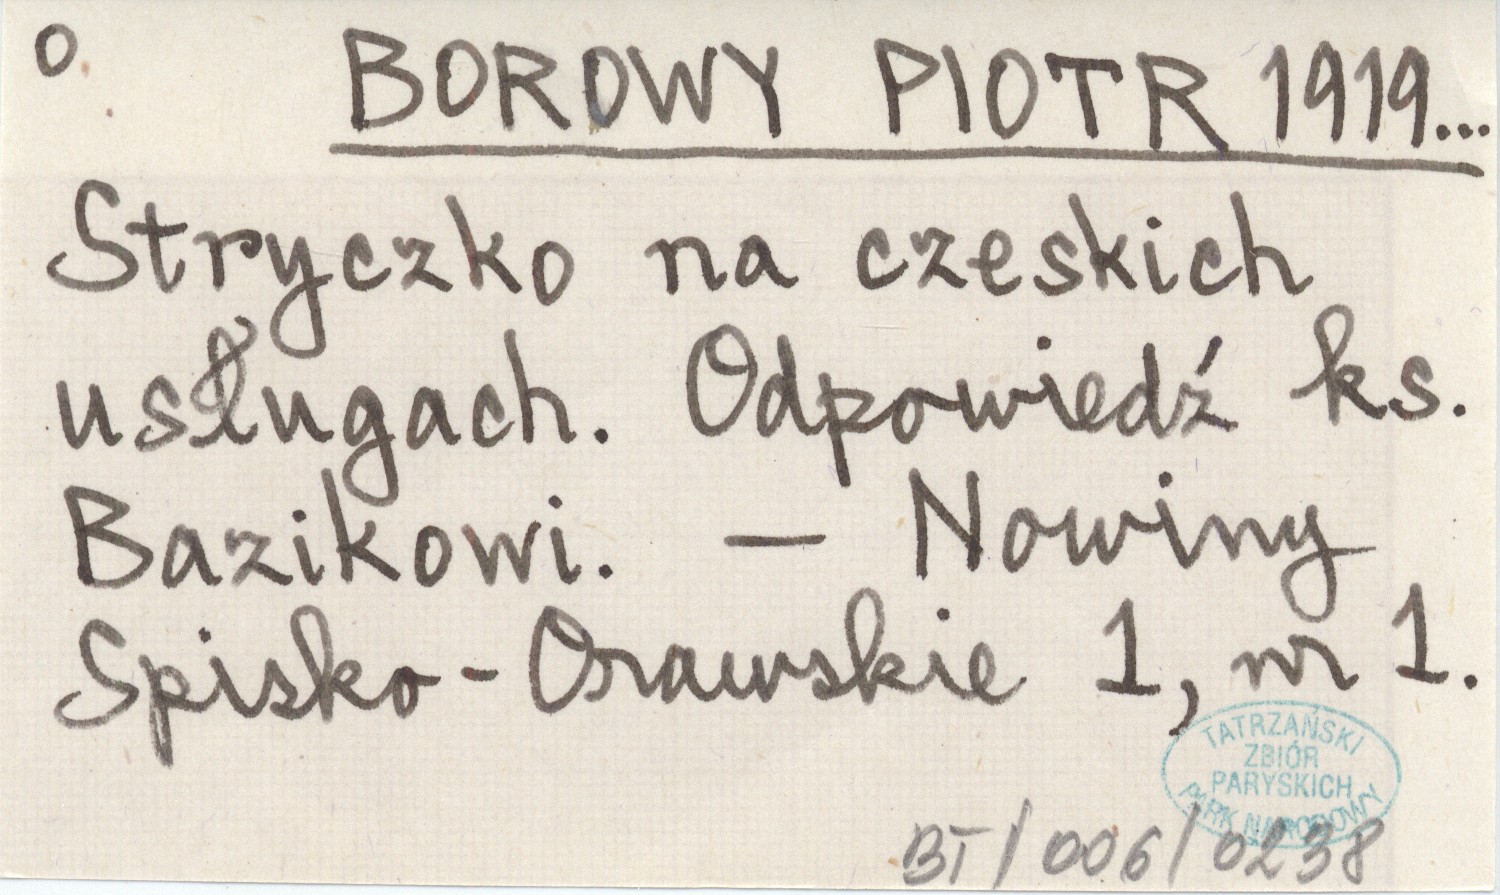 o
BOROWY PIOTR 1919...
Stryczko na czeskich
usługach. Odpowiedź ks.
Bazikowi. — Nowiny
Spisko-Orawskie 1, nr 1.
TATRZAŃSKI
ZBIÓR
PARYSKICH
PARK NARODOWY
BT/006/0238